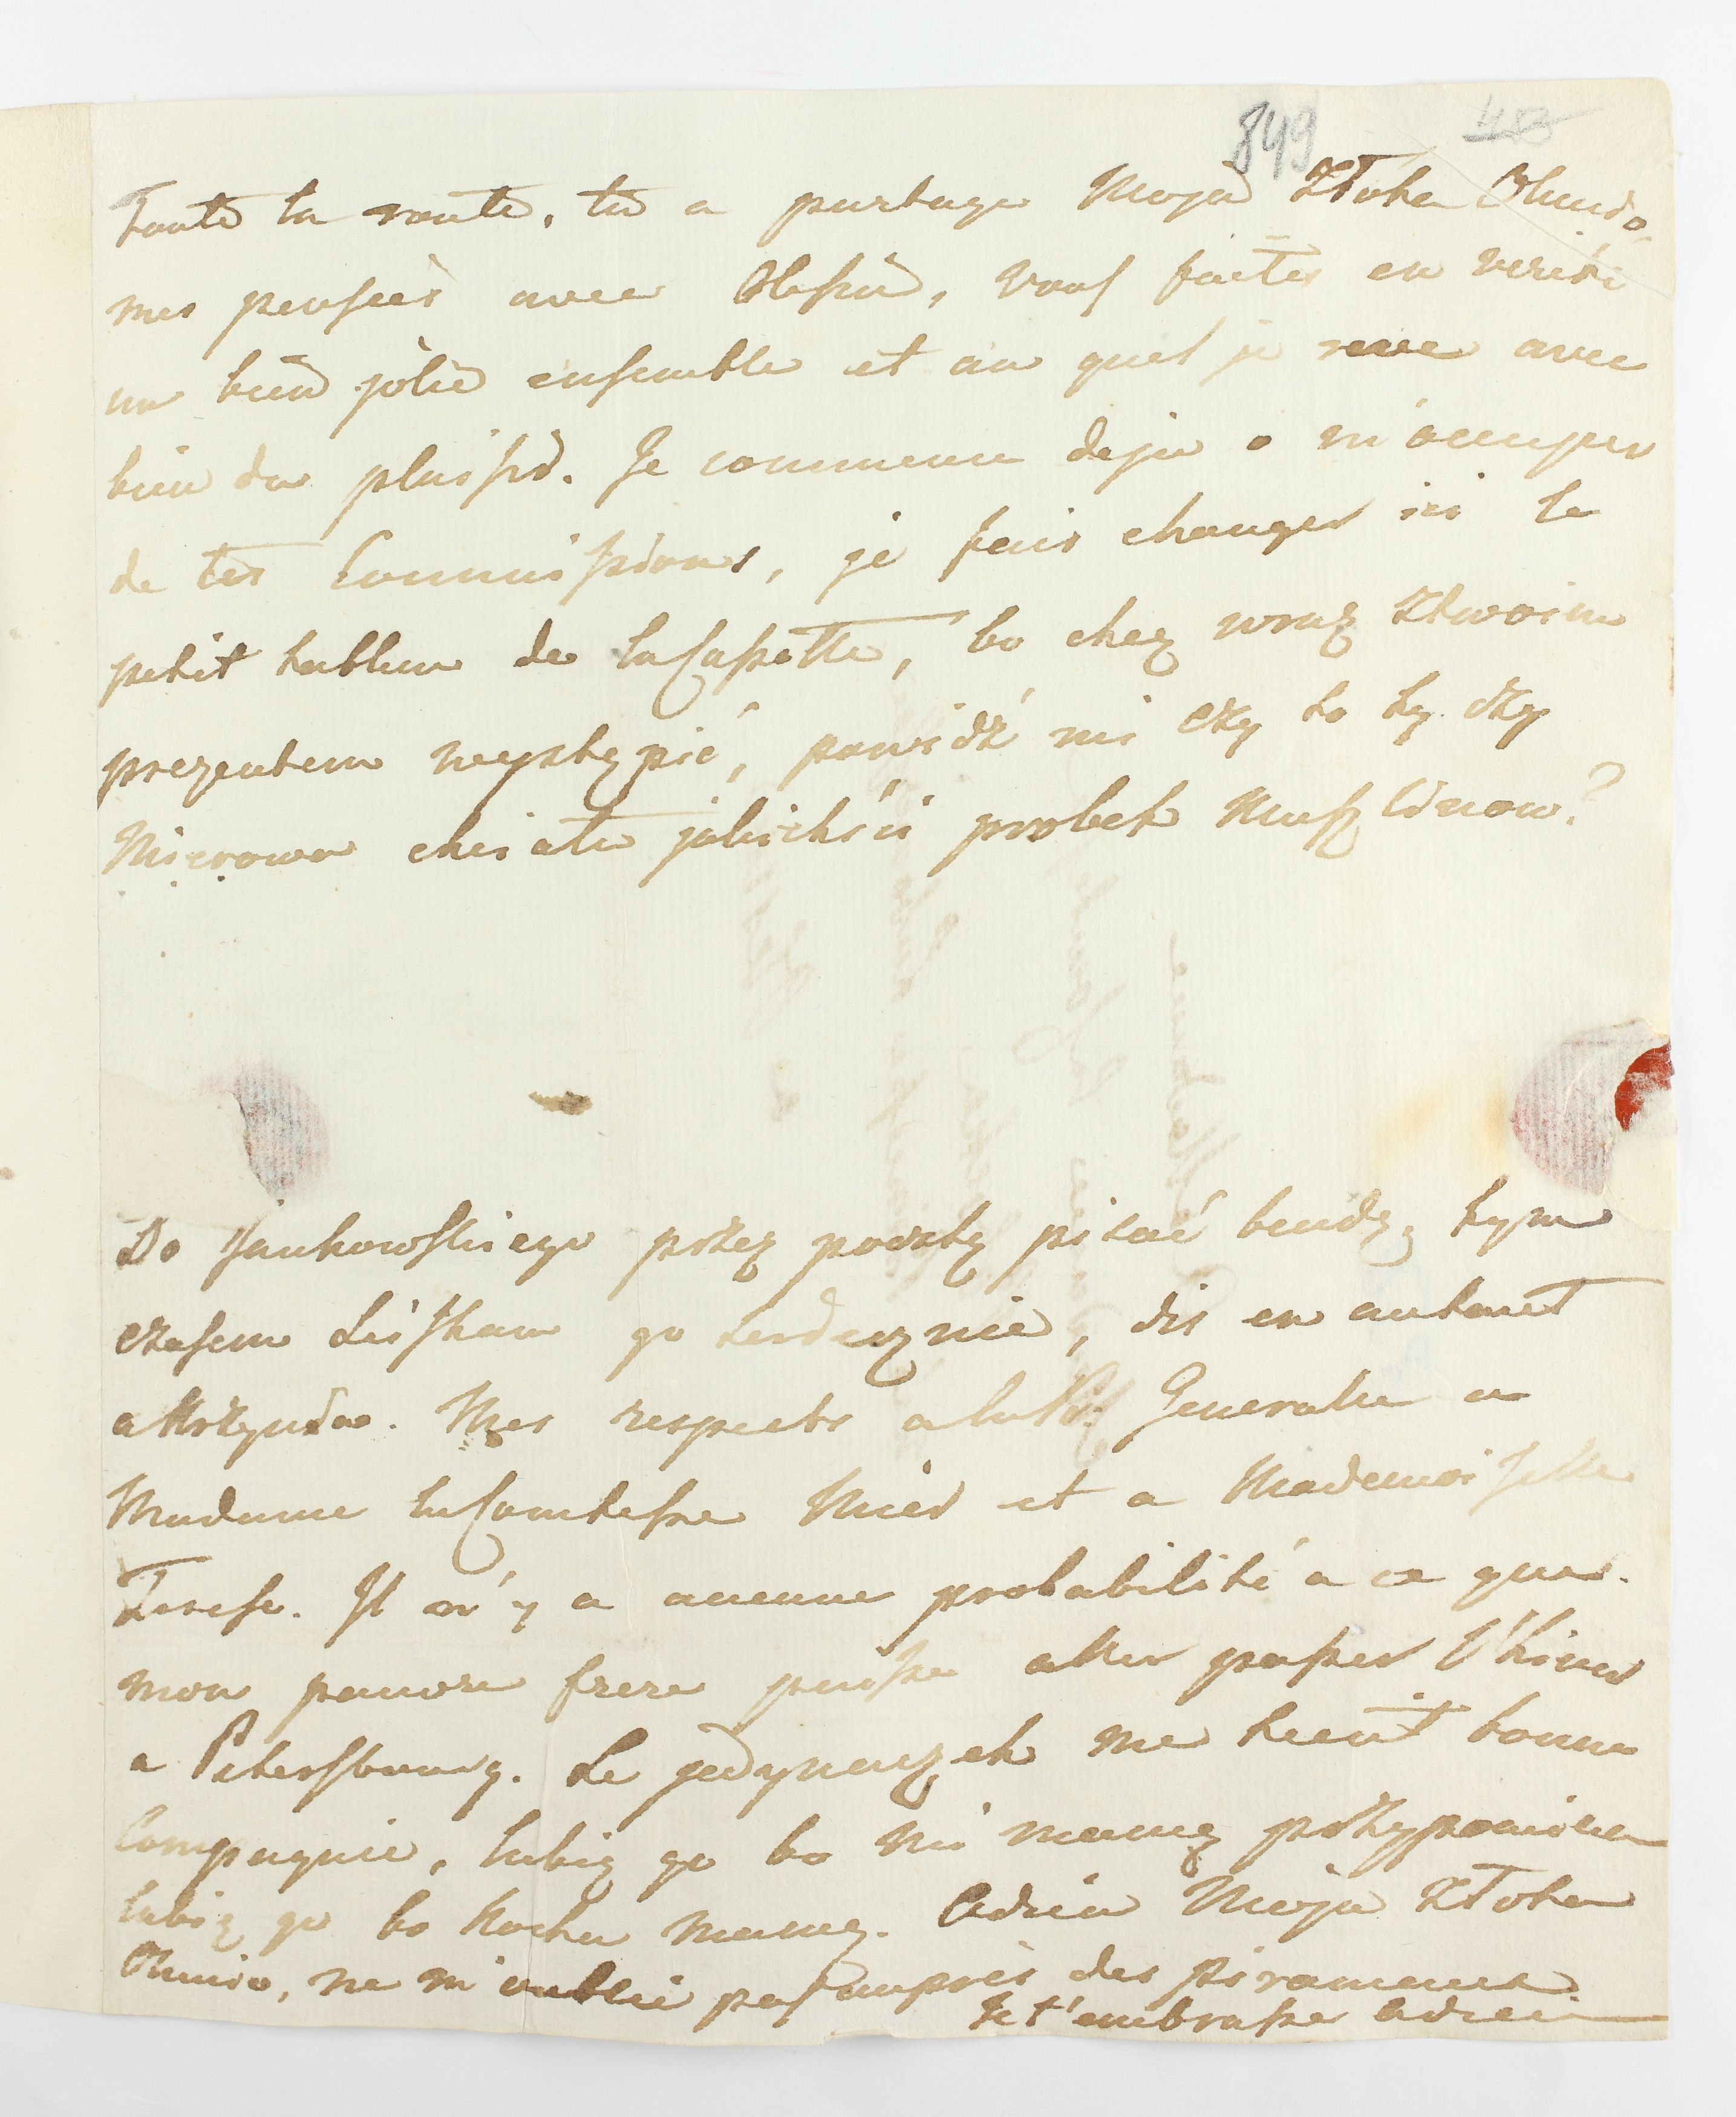 849
Toute la route, tu a partage Moja Złota Oluniu
mes pensées avec Olesiu, vous faites en verité
un bien jolie ensemble et au quel je reve avec
bien du plaisir. Je commence deja a m'occuper
de tes Commissions, je fais changer ici le
petit tableau de la Cassette, bo chcę wraz z twoim
prezentem wystąpić, powidź mi czy to ty czy
Mierowa chciała jakichści probek Muszlinow?
Do Jankowskiego przez pocztę pisać bendę, tym
czasem Sciskam go serdecznie, dis en autant
a Krzysia. Mes respects a la Pr. Generale a
Madame la Comtesse Mier et a Mademoiselle
Terese. Il n'y a aucune probabilité a ce que
mon pauvre frere puisse aller passer l'hiver
a Petersbourg. Le jedynaczek me tient bonne
Compagnie, lubię go bo mi mamę przypomina
lubię go bo kocha mamę. Adieu Moja Złota
Oluniu, ne m'oublie pas auprès des
Je t'embrasse adieu